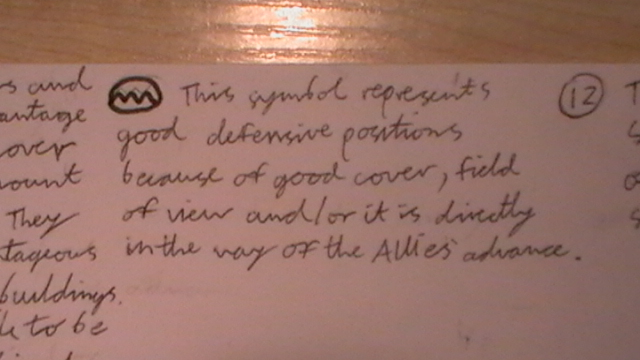 s and
antage
over
ount
They
tageous
buildings.
to be
This symbol represents
good defensive positions
because of good cover, field
of view and/or it is directly
in the way of the Allies' advance.
12